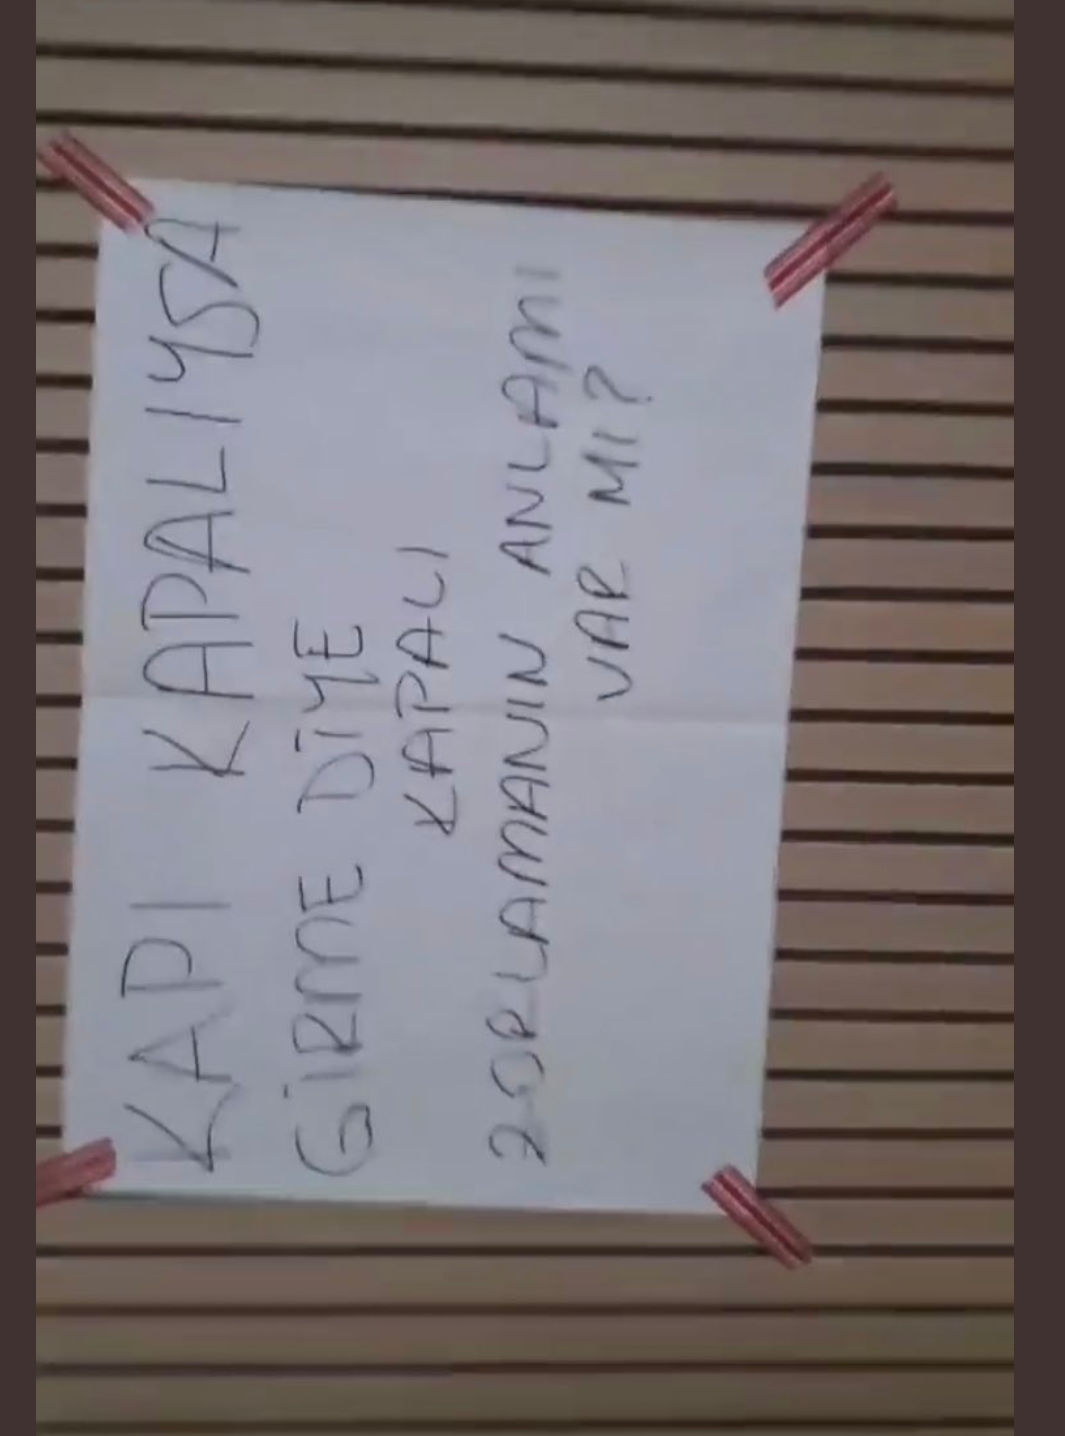 KAPI KAPALIYSA
GİRME DİYE
KAPALI
ZORLAMANIN ANLAMI
VAR MI?